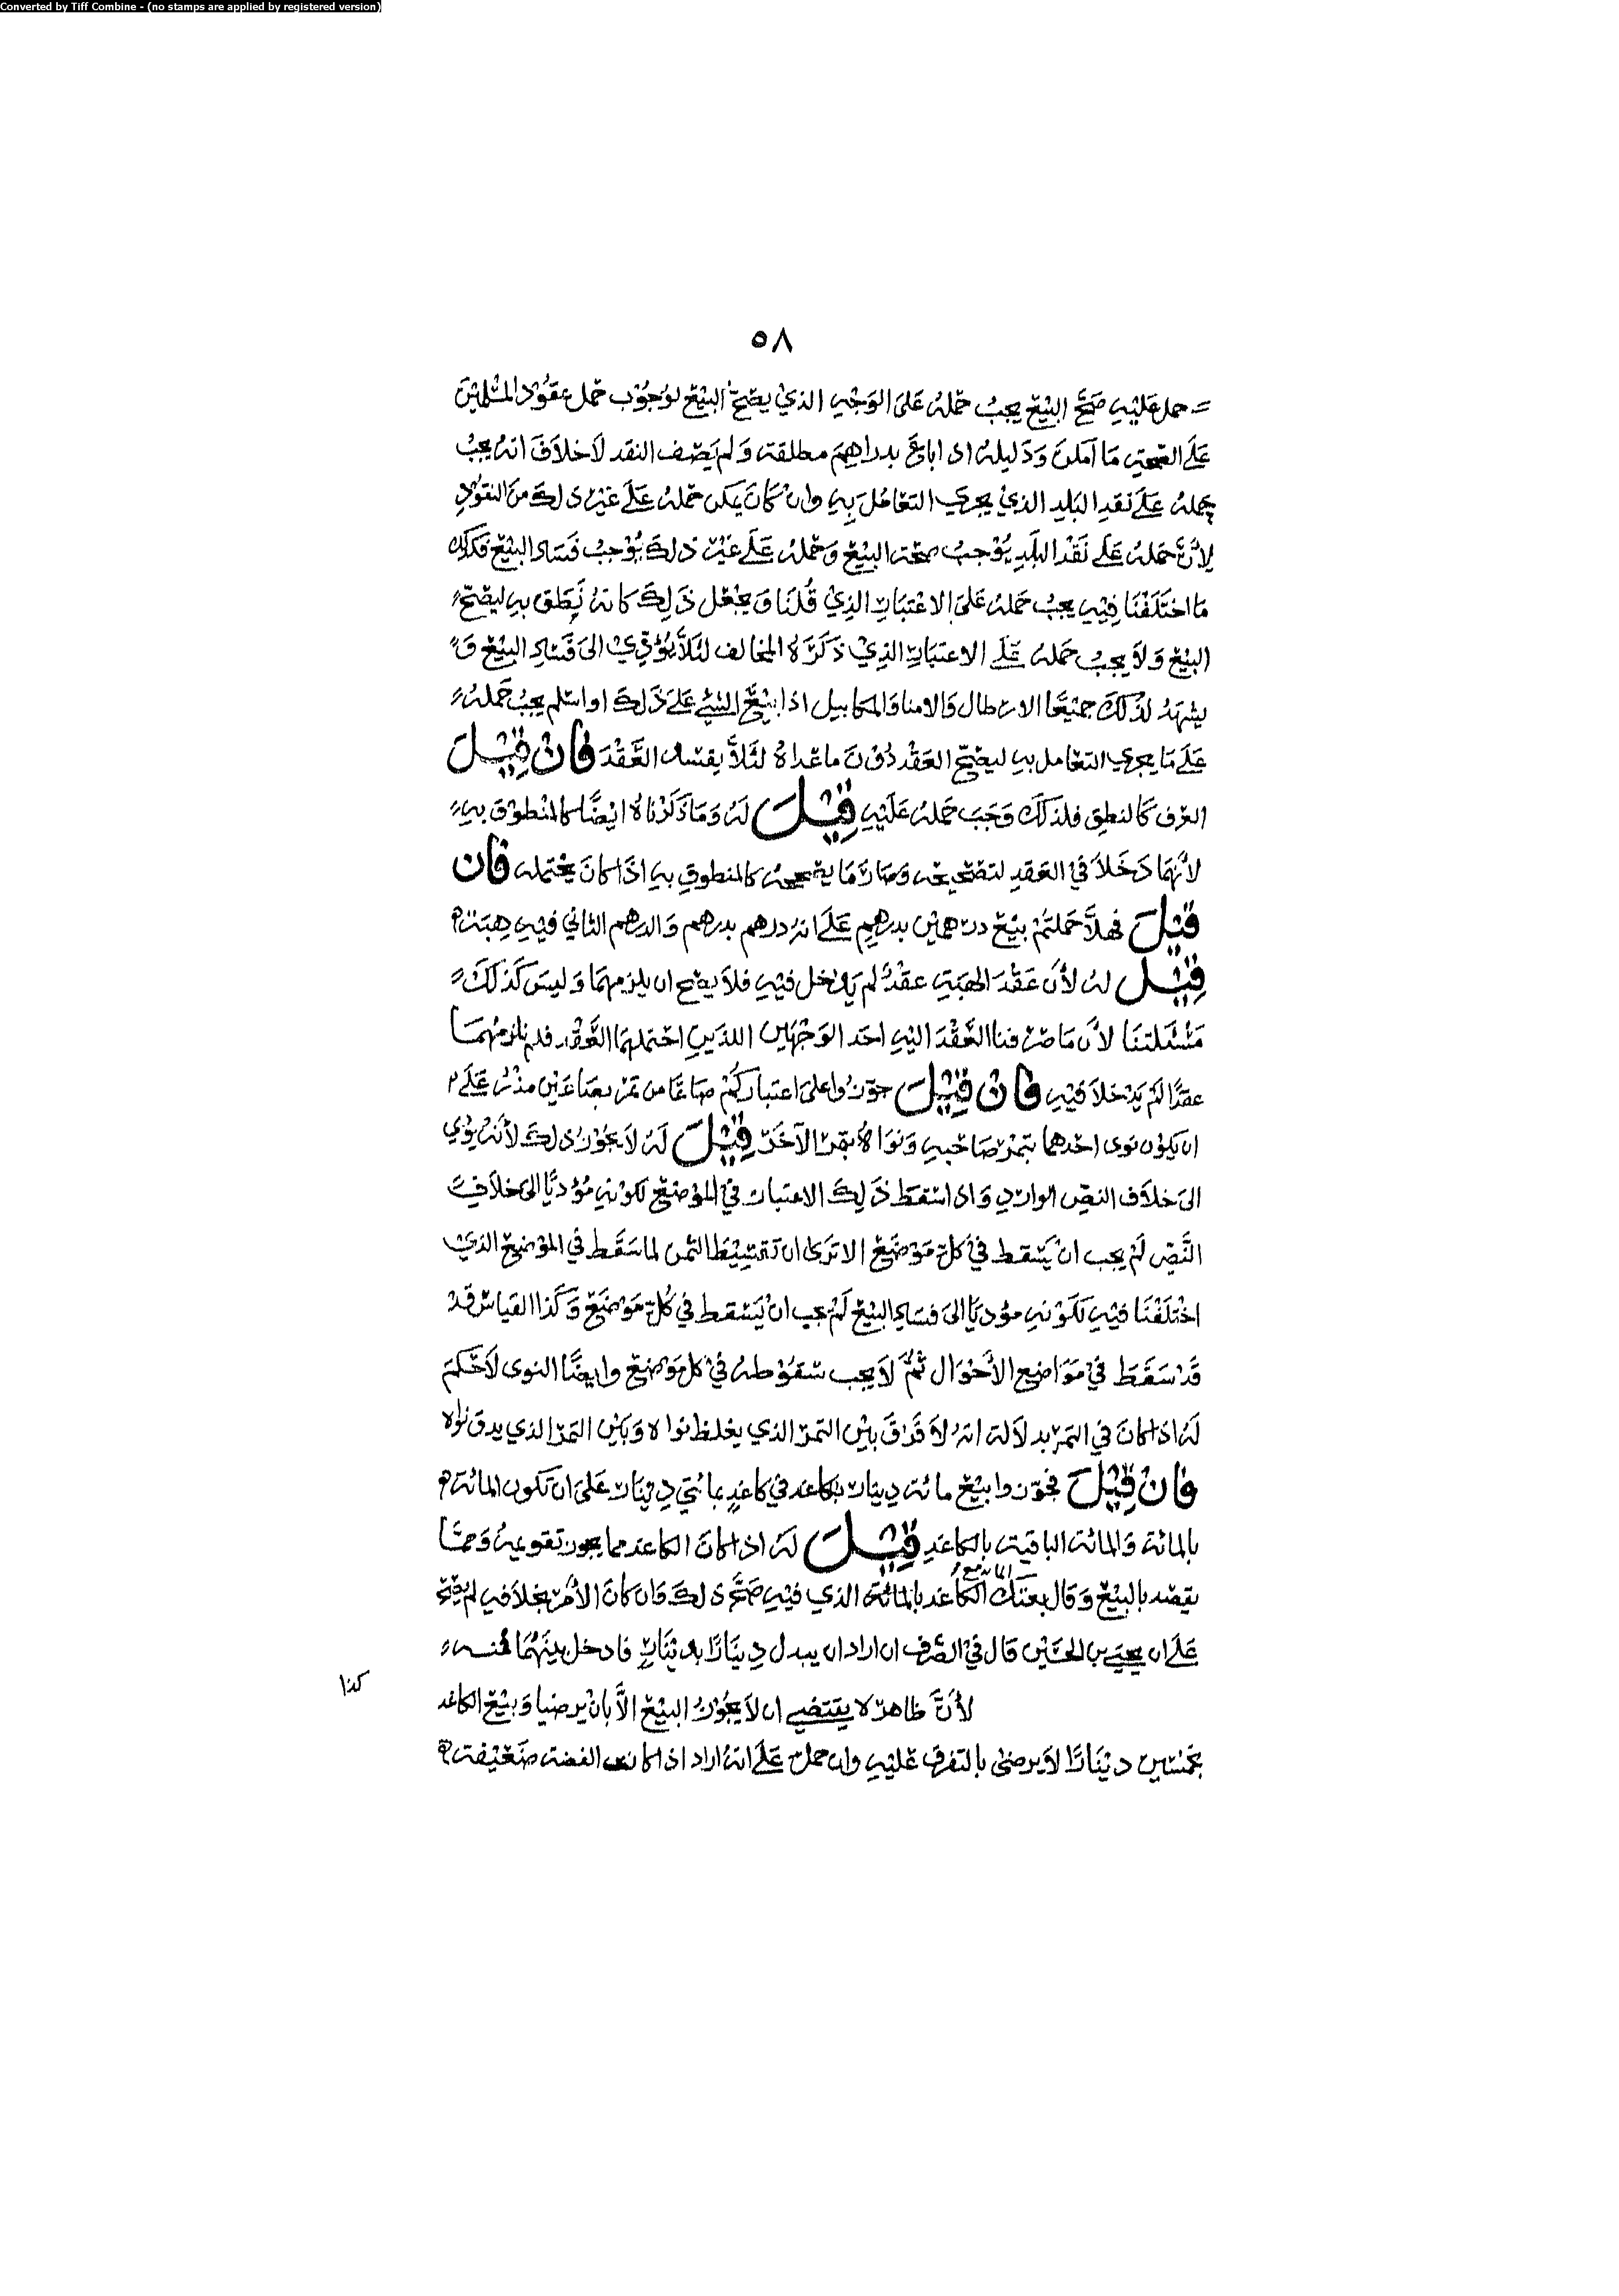 Converted by Tiff Combine - (no stamps are applied by registered version)
٥٨
= حمل عليه صح البيع يجب حمله على الوجه الذي يصح البيع لوجوب حمل عقود المسلمين
على الصحة ما أمكن ودليله اذا باع بدراهم مطلقة ولم يصف النقد لا خلاف انه يجب
حمله على نقد البلد الذي يجري التعامل به وان كان يمكن حمله على غير ذلك من النقود
لأن حمله على نقد البلد يوجب صحة البيع وحمله على غير ذلك يوجب فساد البيع فكذلك
ما اختلفنا فيه يجب حمله على الاعتبار الذي قلنا ويجعل ذلك كانه نطق به ليصح
البيع ولا يجب حمله على الاعتبار الذي ذكره المخالف لئلا يؤدي الى فساد البيع و
يشهد لذلك جميعا الارطال والامنا والمكاييل اذا بيع الشئ على ذلك او اسلم يجب حمله
على ما يجري التعامل به ليصح العقد دون ما عداه لئلا يفسد العقد فان قيل
العرف كالنطق فلذلك وجب حمله عليه قيل له وما ذكرناه ايضا كالمنطوق به
لأنهما دخلا في العقد لتصحيحه وصار ما يصححه كالمنطوق به اذا كان يحتمله فان
قيل فهلا حملتم بيع درهمين بدرهم على انه درهم بدرهم والدرهم الثاني فيه هبة
قيل له لأن عقد الهبة عقد لم يدخل فيه فلا يصح ان يلزمهما وليس كذلك
مسئلتنا لأن ما صرفنا العقد اليه احد الوجهين اللذين احتملهما العقد فلم نلزمهما
عقدا لم يدخلا فيه فان قيل جوزوا على اعتباركم صاعا من تمر بصاعين منه على
ان يكون نوى احدهما بتمر صاحبه ونواه بتمر الآخر قيل له لا يجوز ذلك لأنه يؤدي
الى خلاف النص الوارد واذا سقط ذلك الاعتبار في الموضع لكونه مؤديا الى خلاف
النص لم يجب ان يسقط في كل موضع الا ترى ان تقسيط الثمن لما سقط في الموضع الذي
اختلفنا فيه لكونه مؤديا الى فساد البيع لم يجب ان يسقط في كل موضع وكذا القياس قد
قد سقط في مواضع الأحوال ثم لا يجب سقوطه في كل موضع وايضا النوى لا حكم
له اذا كان في التمر بدلالة انه لا فرق بين التمر الذي يغلظ نواه وبين التمر الذي يدق نواه
فان قيل فجوزوا بيع مائة دينار بكاغد في كاغد بمائتي دينار على ان تكون المائة
بالمائة والمائة الباقية بالكاغد قيل له اذا كان الكاغد مما يجوز تقويمه ومما
يقصد بالبيع وقال بعتك الكاغد بالمائة الذي فيه صح ذلك وان كان الأمر بخلافه لم يصح
على ان يحيى بن الحسين قال في الصرف ان اراد ان يبدل دينارا بدينار فادخل بينهما فضة
كذا
لأن ظاهره يقتضي ان لا يجوز البيع الا بان يرضيا وبيع الكاغد
بخمسين دينارا لا يرضى بالتفرق عليه وان حمل على انه اراد اذا كانت الفضة ضعيفة